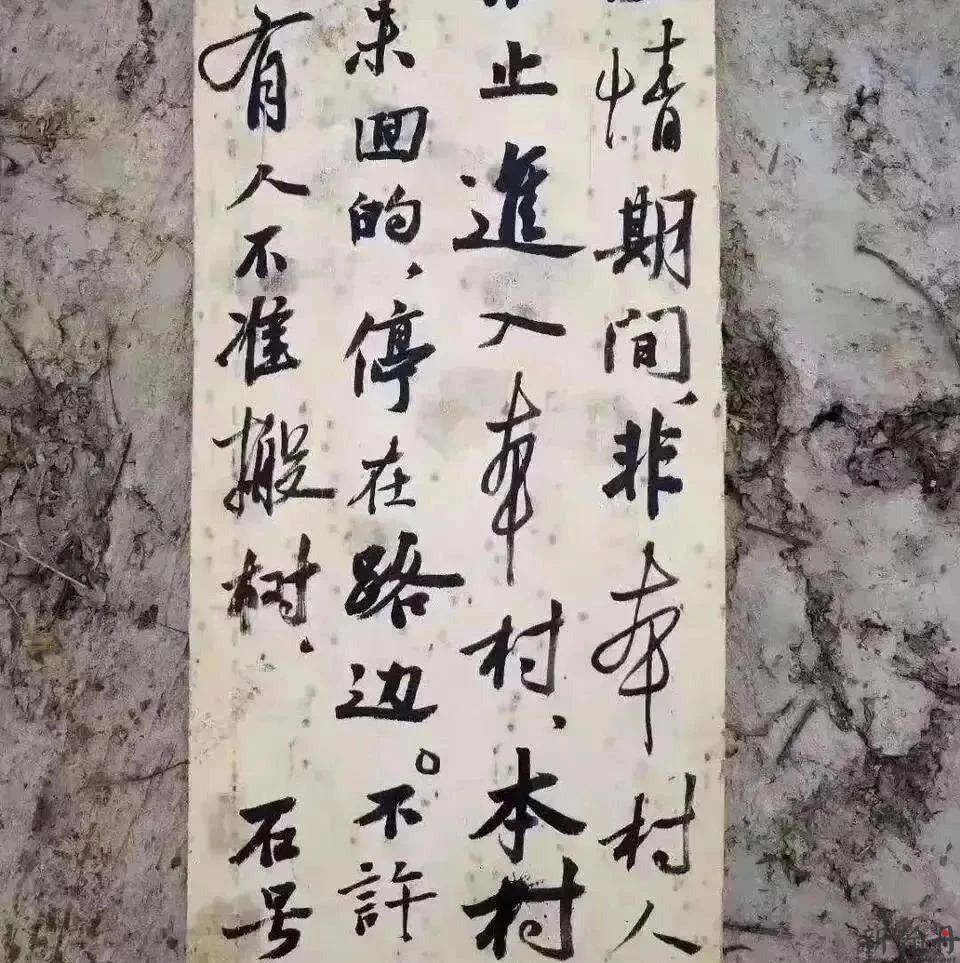 情期间、非本村人
止進入本村、本村
来回的，停在路边。不許
有人不准搬树．石号